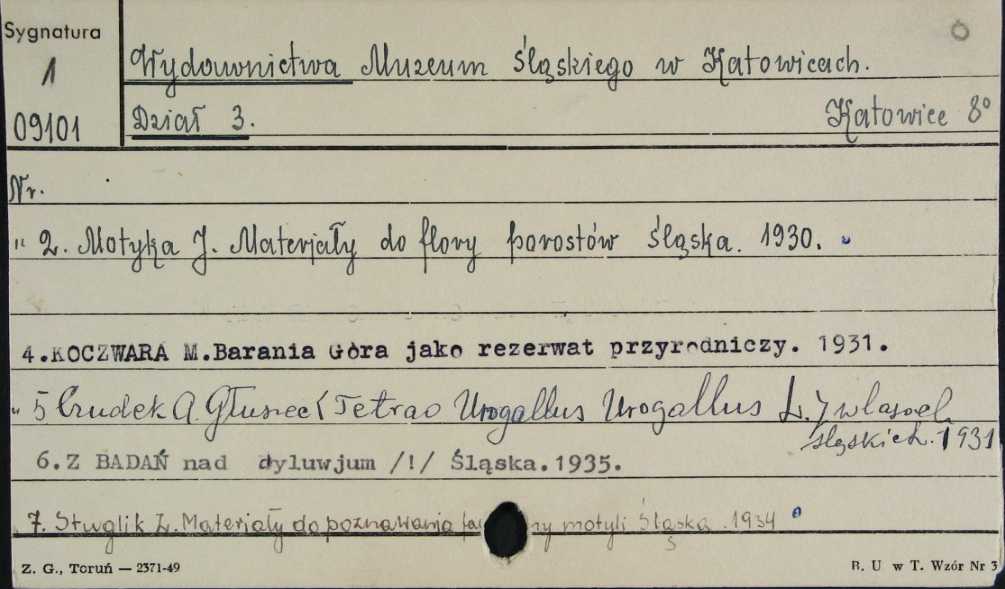 Sygnatura
1
09101
Wydawnictwa Muzeum Śląskiego w Katowicach.
Dział 3. Katowice 8°
Nr.
" 2. Motyka J. Materjały do flory porostów Śląska. 1930.
4.KOCZWARA M.Barania Góra jako rezerwat przyrodniczy. 1931.
" 5 Czudek A. Głuszec (Tetrao Urogallus Urogallus L.) w lasach
śląskich. 1931
6.Z BADAŃ nad dyluwjum /!/ Śląska.1935.
7. Stuglik Z. Materiały do poznawania motyli Śląska. 1934
Z. G., Toruń — 2371-49
B. U w T. Wzór Nr 3